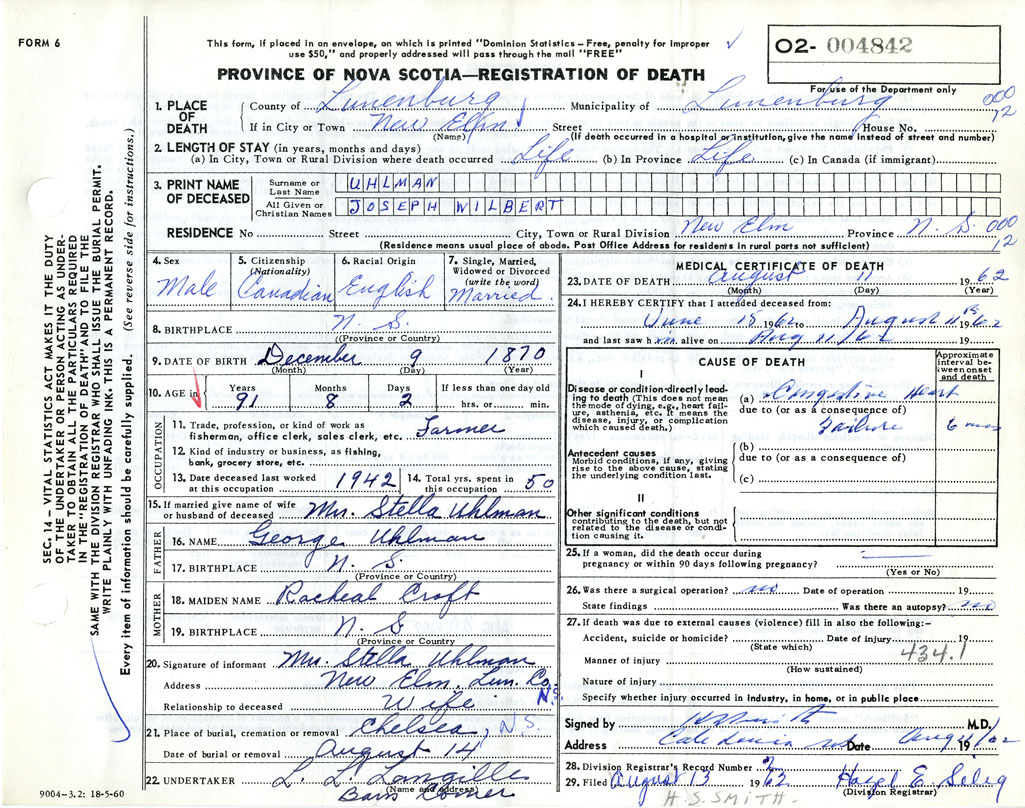 FORM 6
This form, if placed in an envelope, on which is printed "Dominion Statistics – Free, penalty for improper
use $50," and properly addressed will pass through the mail "FREE"
O2- 004842
For use of the Department only
PROVINCE OF NOVA SCOTIA—REGISTRATION OF DEATH
1. PLACE OF DEATH
County of Lunenburg Municipality of Lunenburg 000
If in City or Town New Elm Street House No. 12
(Name) (If death occurred in a hospital or institution, give the name instead of street and number)
2. LENGTH OF STAY (in years, months and days)
(a) In City, Town or Rural Division where death occurred Life (b) In Province Life (c) In Canada (if immigrant)
3. PRINT NAME OF DECEASED
Surname or Last Name UHLMAN
All Given or Christian Names JOSEPH WILBERT
RESIDENCE No Street City, Town or Rural Division New Elm Province N. S. 000
(Residence means usual place of abode. Post Office Address for residents in rural parts not sufficient) 12
4. Sex Male
5. Citizenship (Nationality) Canadian
6. Racial Origin English
7. Single, Married, Widowed or Divorced (write the word) Married.
8. BIRTHPLACE N. S.
(Province or Country)
9. DATE OF BIRTH December 9 1870
(Month) (Day) (Year)
10. AGE in Years 91 Months 8 Days 2 If less than one day old hrs. or min.
OCCUPATION
11. Trade, profession, or kind of work as
fisherman, office clerk, sales clerk, etc. Farmer
12. Kind of industry or business, as fishing,
bank, grocery store, etc.
13. Date deceased last worked at this occupation 1942 14. Total yrs. spent in this occupation 50
15. If married give name of wife
or husband of deceased Mrs. Stella Uhlman
FATHER
16. NAME George Uhlman
17. BIRTHPLACE N. S.
(Province or Country)
MOTHER
18. MAIDEN NAME Racheal Croft
19. BIRTHPLACE N. S
(Province or Country)
20. Signature of informant Mrs. Stella Uhlman
Address New Elm, Lun. Co. N.S.
Relationship to deceased Wife
21. Place of burial, cremation or removal Chelsea, N.S.
Date of burial or removal August 14
22. UNDERTAKER L. L. Langille
(Name and address)
9004–3.2: 18-5-60
MEDICAL CERTIFICATE OF DEATH
23. DATE OF DEATH August 11 1962
(Month) (Day) (Year)
24. I HEREBY CERTIFY that I attended deceased from:
June 15 1962 to August 11 1962
and last saw him alive on Aug 11/62 19
CAUSE OF DEATH
Approximate interval between onset and death
I
Disease or condition directly leading to death (This does not mean the mode of dying, e.g., heart failure, asthenia, etc. It means the disease, injury, or complication which caused death.)
(a) Congestive Heart
due to (or as a consequence of)
Failure 6 mos
Antecedent causes
Morbid conditions, if any, giving rise to the above cause, stating the underlying condition last.
(b)
due to (or as a consequence of)
(c)
II
Other significant conditions
contributing to the death, but not related to the disease or condition causing it.
25. If a woman, did the death occur during
pregnancy or within 90 days following pregnancy?
(Yes or No)
26. Was there a surgical operation? no Date of operation 19
State findings Was there an autopsy? no
27. If death was due to external causes (violence) fill in also the following:–
Accident, suicide or homicide? Date of injury 19
(State which) 434.1
Manner of injury
(How sustained)
Nature of injury
Specify whether injury occurred in industry, in home, or in public place
Signed by M.D.
Address Caledonia Date 19
28. Division Registrar's Record Number
29. Filed August 13 1962 Hazel E. Seleg
(Division Registrar)
H. S. SMITH.
SEC. 14 - VITAL STATISTICS ACT MAKES IT THE DUTY
OF THE UNDERTAKER OR PERSON ACTING AS UNDER-
TAKER TO OBTAIN ALL THE PARTICULARS REQUIRED
IN THE "REGISTRATION OF DEATH" AND TO FILE THE
SAME WITH THE DIVISION REGISTRAR WHO SHALL ISSUE THE BURIAL PERMIT.
WRITE PLAINLY WITH UNFADING INK. THIS IS A PERMANENT RECORD.
Every item of information should be carefully supplied. (See reverse side for instructions.)